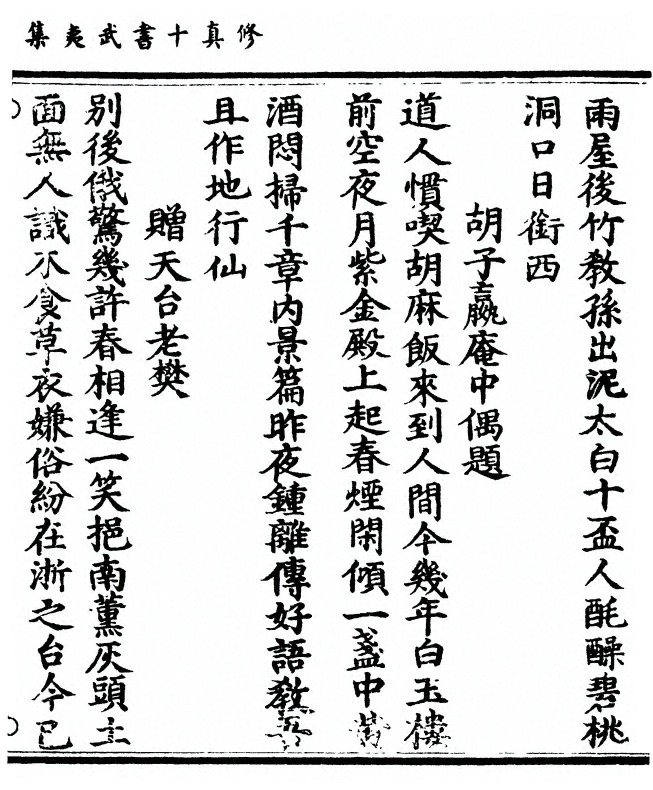 修真十書武夷集
雨屋後竹敎孫出泥太白十盃人酕醄碧桃
洞口日銜西
胡子嬴庵中偶題
道人慣喫胡麻飯來到人間今幾年白玉樓
前空夜月紫金殿上起春煙閑傾一盞中黃
酒悶掃千章内景篇昨夜鍾離傳好語敎吾
且作地行仙
贈天台老樊
別後俄驚幾許春相逢一笑挹南薰灰頭土
面無人識木食草衣嫌俗紛在浙之台今已